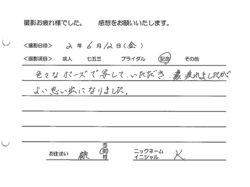 撮影お疲れ様でした。 感想をお願いいたします。
<撮影日時> 2年 6月 12日 (金)
<撮影項目> 成人 七五三 ブライダル 記念 その他
色々なポーズで写していただき 疲れましたが
よい思い出になりました。
お住まい 市 町 村
ニックネーム
イニシャル K